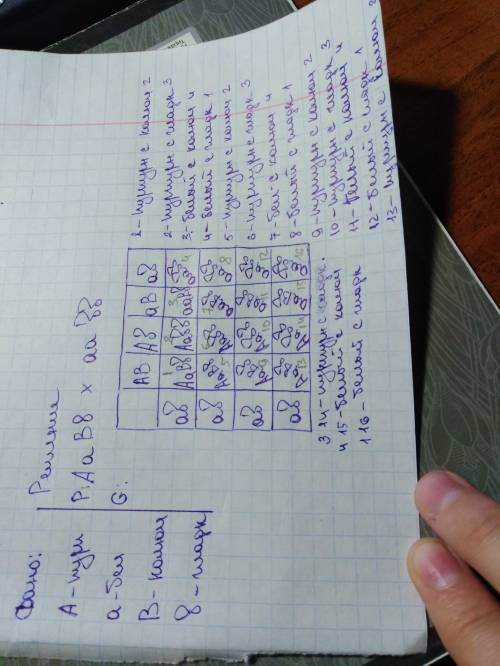 Дано:
А - пурп
а - бел
В - колюч
в - гладк
Решение
Р: АаВв х аавв
G:
АВ Ав аВ ав
ав АаВв Аавв ааВв аавв
ав АаВв Аавв ааВв аавв
ав АаВв Аавв ааВв аавв
ав АаВв Аавв ааВв аавв
1 - пурпурн с колюч 2
2 - пурпурн с гладк 3
3 - белой с колюч 4
4 - белый с гладк 1
5 - пурпурн с колюч 2
6 - пурпурн с гладк 3
7 - бел с колюч 4
8 - белый с гладк 1
9 - пурпурн с колюч 2
10 - пурпурн с гладк 3
11 - белый с колюч 4
12 - белый с гладк 1
13 - пурпурн с колюч 2
3 14 - пурпурн с гладк.
4 15 - белый с колюч
1 16 - белый с гладк